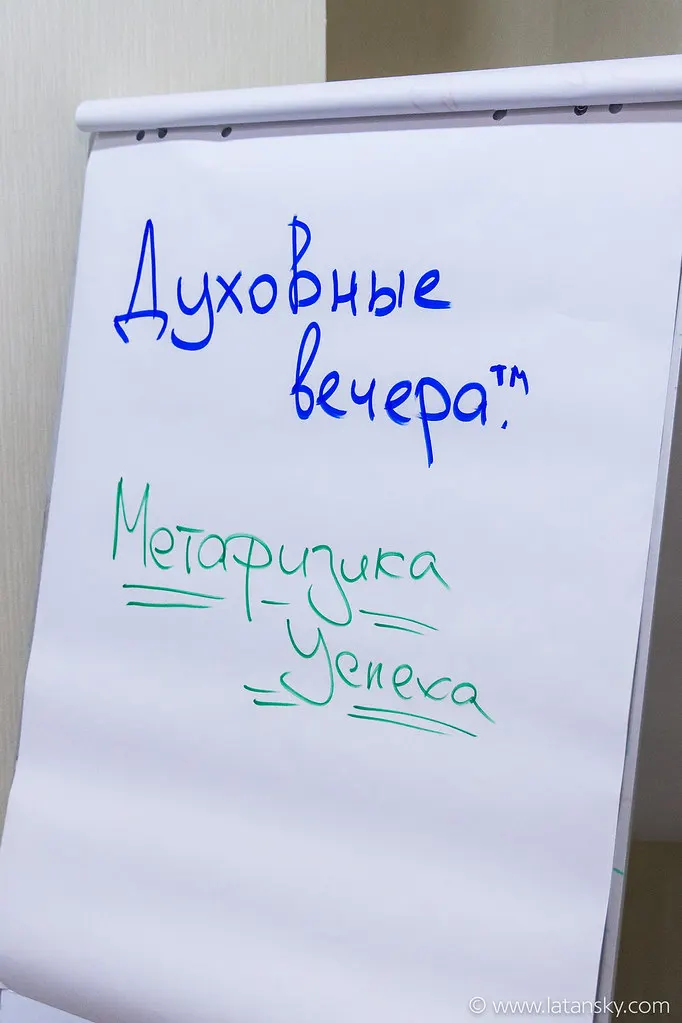 Духовные
вечера™.
Метафизика
Успеха
© www.latansky.com